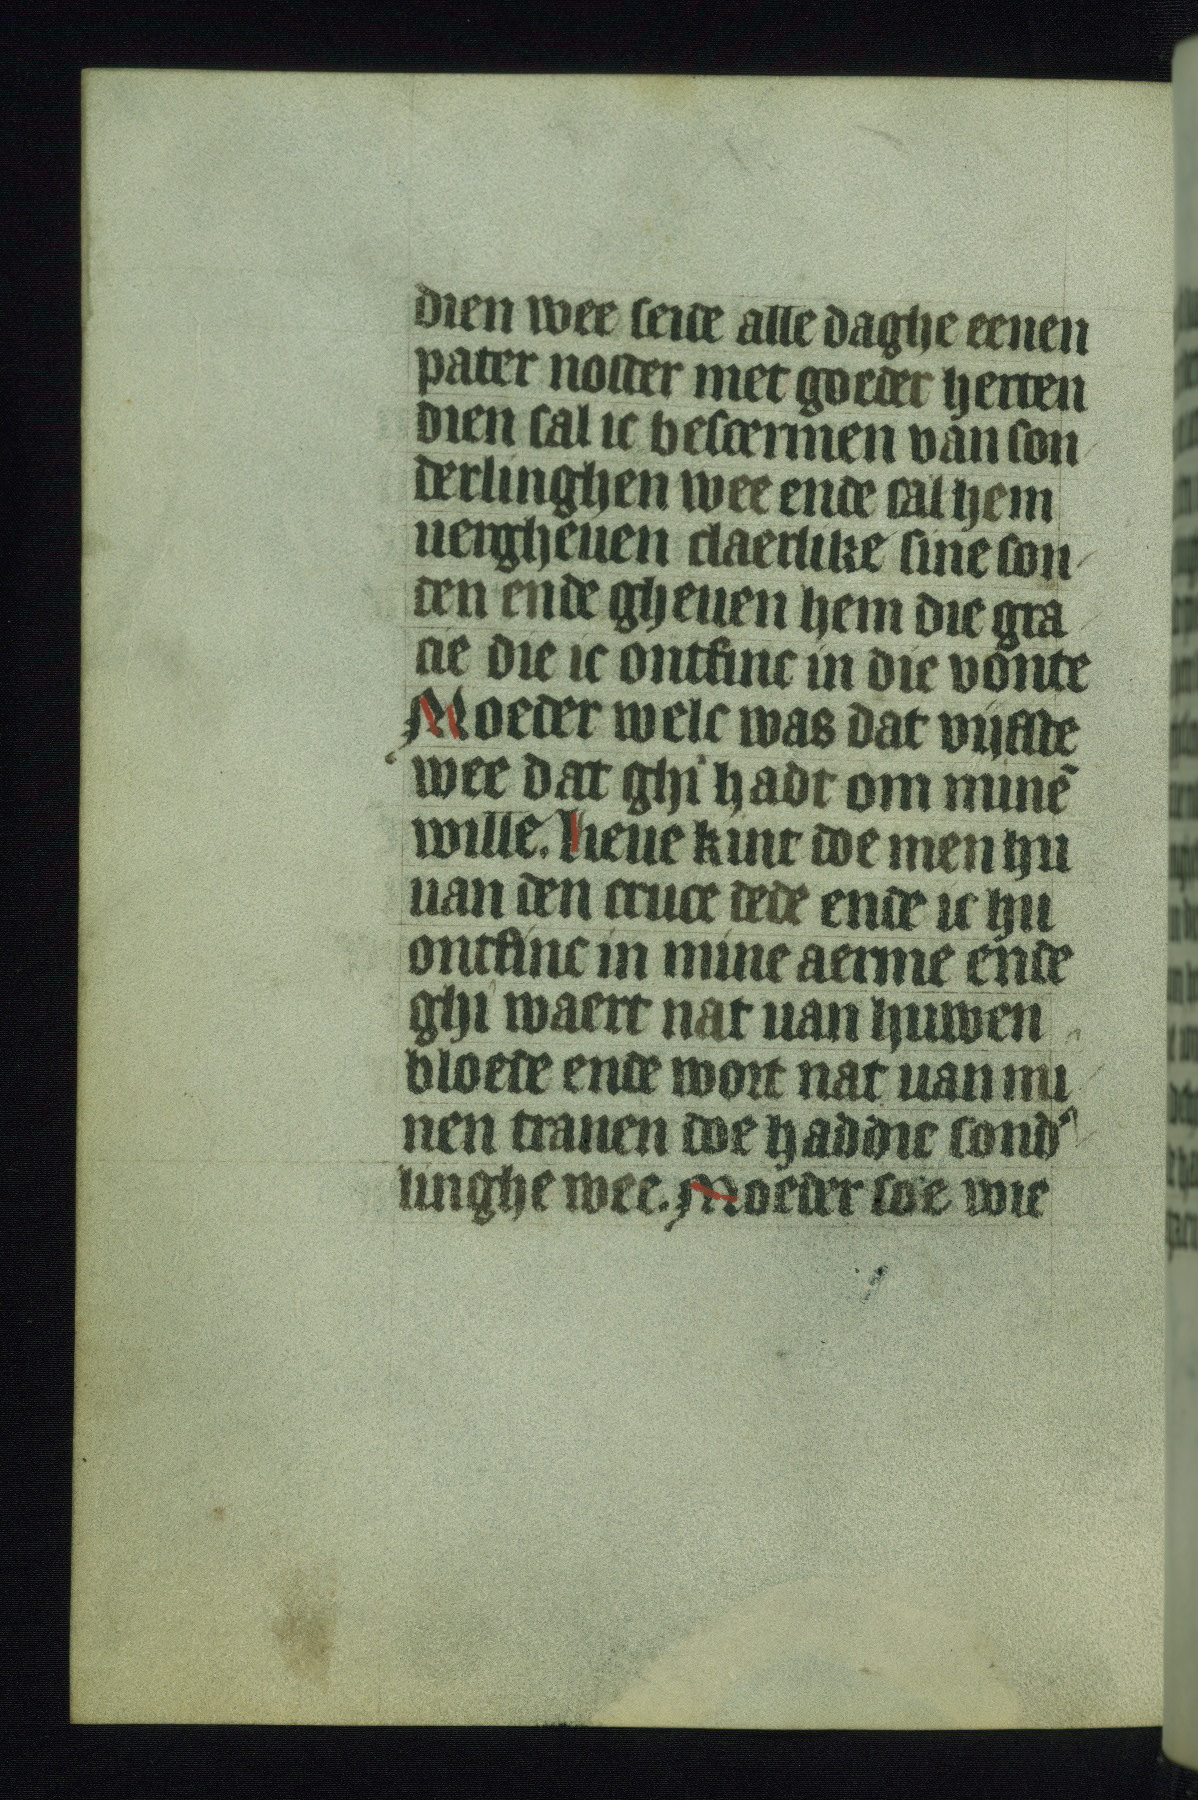 dien wee seide alle daghe eenen
pater noster met goeder herten
dien sal ic bescermen van son
derlinghen wee ende sal hem
uergheuen claerlike sine son
den ende gheuen hem die gra
cie die ic ontfinc in die vonte
Moeder welc was dat vijfste
wee dat ghi hadt om minē
wille. Lieue kint doe men hu
uan den cruce dede ende ic hu
ontfinc in mine aerme ende
ghi waert nat uan huwen
bloede ende wort nat uan mi
nen tranen doe haddic sond'
linghe wee. Moeder soe wie